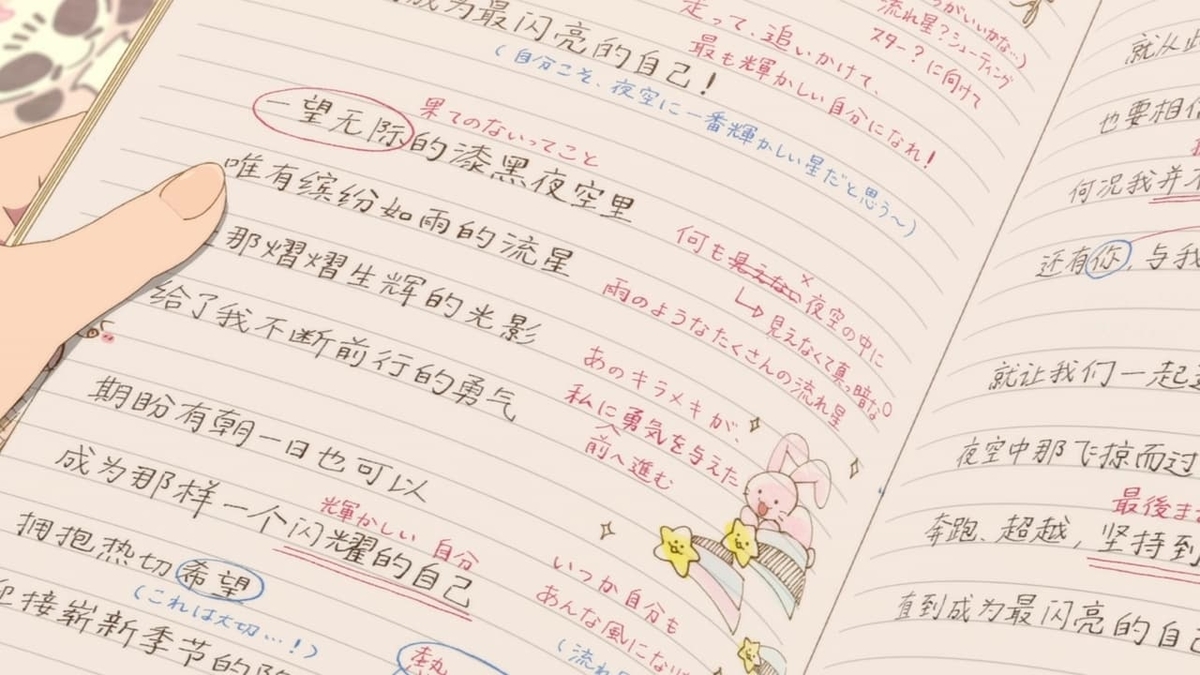 成为最闪亮的自己！
(自分こそ、夜空に一番輝かしい星だと思う〜)
走って、追いかけて、
最も輝かしい自分になれ！
流れ星？シューティング
スター？に向けて
果てのないってこと
一望无际的漆黑夜空里
唯有缤纷如雨的流星
那熠熠生辉的光影
给了我不断前行的勇气
何も見えない夜空の中に
見えなくて真っ暗な
雨のようなたくさんの流れ星
あのキラメキが、
私に勇気を与えた
前へ進む
期盼有朝一日也可以
成为那样一个闪耀的自己
輝かしい 自分
いつか自分も
あんな風になり
拥抱热切希望
(これは大切…！)
接崭新季节的
熱
(流れ
就从此
也要相信
何况我并不
还有你,与我
就让我们一起
夜空中那飞掠而过
最後ま
奔跑、超越,坚持到
直到成为最闪亮的自己